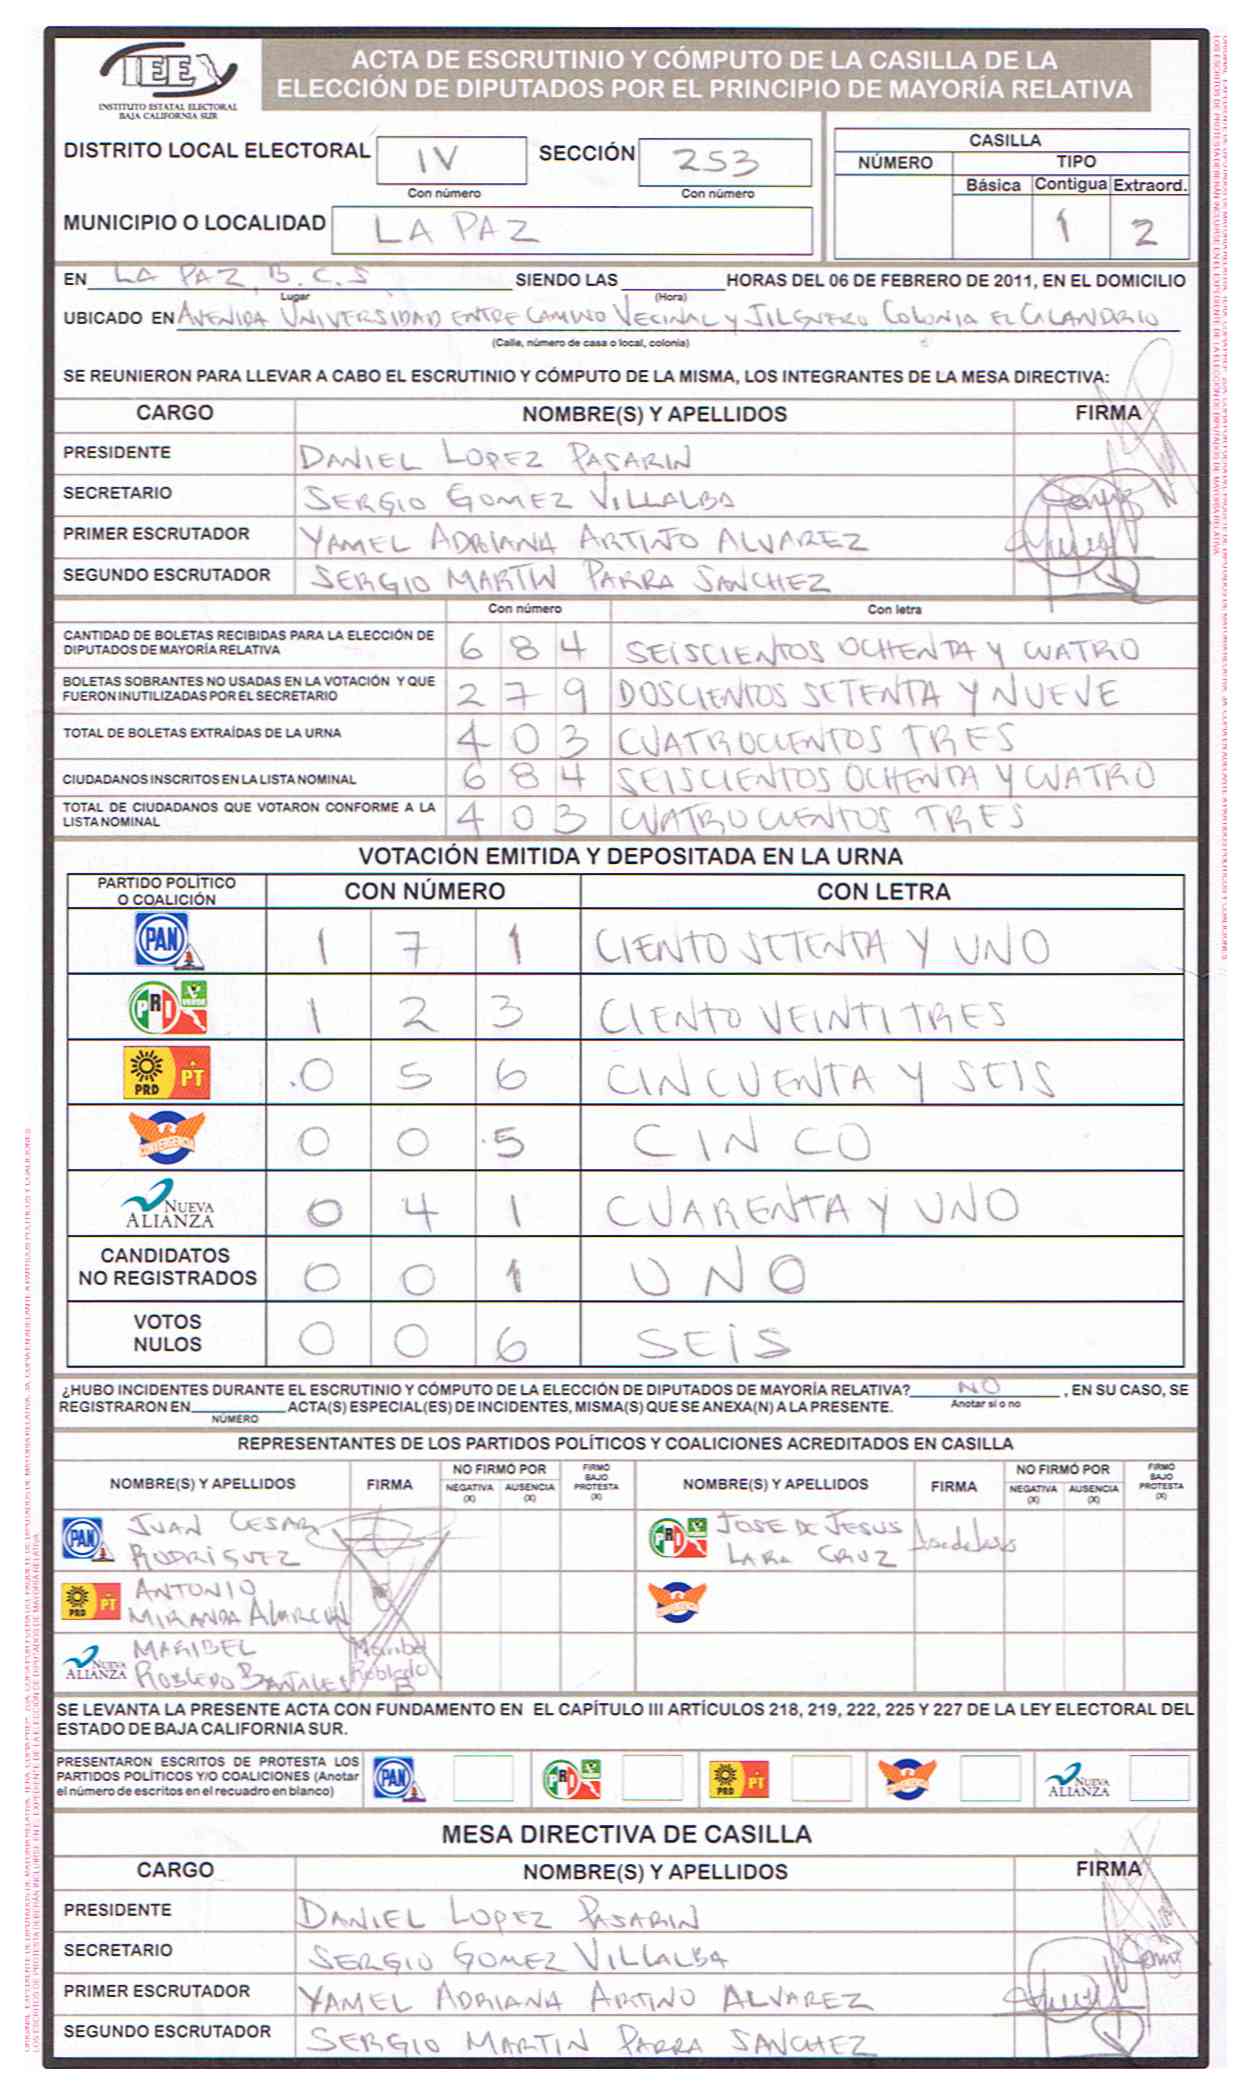 IEE
INSTITUTO ESTATAL ELECTORAL
BAJA CALIFORNIA SUR
ACTA DE ESCRUTINIO Y CÓMPUTO DE LA CASILLA DE LA
ELECCIÓN DE DIPUTADOS POR EL PRINCIPIO DE MAYORÍA RELATIVA
DISTRITO LOCAL ELECTORAL IV SECCIÓN 253
Con número Con número
MUNICIPIO O LOCALIDAD LA PAZ
CASILLA
NÚMERO TIPO
Básica Contigua Extraord.
1 2
EN LA PAZ, B.C.S. SIENDO LAS HORAS DEL 06 DE FEBRERO DE 2011, EN EL DOMICILIO
Lugar (Hora)
UBICADO EN AVENIDA UNIVERSIDAD ENTRE CAMINO VECINAL Y JILGUERO COLONIA EL CALANDRIO
(Calle, número de casa o local, colonia)
SE REUNIERON PARA LLEVAR A CABO EL ESCRUTINIO Y CÓMPUTO DE LA MISMA, LOS INTEGRANTES DE LA MESA DIRECTIVA:
CARGO NOMBRE(S) Y APELLIDOS FIRMA
PRESIDENTE DANIEL LOPEZ PASARIN
SECRETARIO SERGIO GOMEZ VILLALBA
PRIMER ESCRUTADOR YAMEL ADRIANA ARTIÑO ALVAREZ
SEGUNDO ESCRUTADOR SERGIO MARTIN PARRA SANCHEZ
Con número Con letra
CANTIDAD DE BOLETAS RECIBIDAS PARA LA ELECCIÓN DE
DIPUTADOS DE MAYORÍA RELATIVA 6 8 4 SEISCIENTOS OCHENTA Y CUATRO
BOLETAS SOBRANTES NO USADAS EN LA VOTACIÓN Y QUE
FUERON INUTILIZADAS POR EL SECRETARIO 2 7 9 DOSCIENTOS SETENTA Y NUEVE
TOTAL DE BOLETAS EXTRAÍDAS DE LA URNA 4 0 3 CUATROCIENTOS TRES
CIUDADANOS INSCRITOS EN LA LISTA NOMINAL 6 8 4 SEISCIENTOS OCHENTA Y CUATRO
TOTAL DE CIUDADANOS QUE VOTARON CONFORME A LA
LISTA NOMINAL 4 0 3 CUATROCIENTOS TRES
VOTACIÓN EMITIDA Y DEPOSITADA EN LA URNA
PARTIDO POLÍTICO
O COALICIÓN CON NÚMERO CON LETRA
PAN 1 7 1 CIENTO SETENTA Y UNO
PRI VERDE 1 2 3 CIENTO VEINTITRES
PRD PT 0 5 6 CINCUENTA Y SEIS
CONVERGENCIA 0 0 5 CINCO
NUEVA
ALIANZA 0 4 1 CUARENTA Y UNO
CANDIDATOS
NO REGISTRADOS 0 0 1 UNO
VOTOS
NULOS 0 0 6 SEIS
¿HUBO INCIDENTES DURANTE EL ESCRUTINIO Y CÓMPUTO DE LA ELECCIÓN DE DIPUTADOS DE MAYORÍA RELATIVA? NO , EN SU CASO, SE
Anotar sí o no
REGISTRARON EN ACTA(S) ESPECIAL(ES) DE INCIDENTES, MISMA(S) QUE SE ANEXA(N) A LA PRESENTE.
NÚMERO
REPRESENTANTES DE LOS PARTIDOS POLÍTICOS Y COALICIONES ACREDITADOS EN CASILLA
NOMBRE(S) Y APELLIDOS FIRMA NO FIRMÓ POR NEGATIVA (X) AUSENCIA (X) FIRMÓ BAJO PROTESTA (X) NOMBRE(S) Y APELLIDOS FIRMA NO FIRMÓ POR NEGATIVA (X) AUSENCIA (X) FIRMÓ BAJO PROTESTA (X)
PAN JUAN CESAR
RODRIGUEZ
PRI JOSE DE JESUS
LARA CRUZ Jose de Jesus
PRD PT ANTONIO
MIRANDA ALARCON
CONVERGENCIA
NUEVA
ALIANZA MARIBEL
ROBLEDO BAÑALES Maribel
Robledo
B
SE LEVANTA LA PRESENTE ACTA CON FUNDAMENTO EN EL CAPÍTULO III ARTÍCULOS 218, 219, 222, 225 Y 227 DE LA LEY ELECTORAL DEL
ESTADO DE BAJA CALIFORNIA SUR.
PRESENTARON ESCRITOS DE PROTESTA LOS
PARTIDOS POLÍTICOS Y/O COALICIONES (Anotar
el número de escritos en el recuadro en blanco)
PAN PRI PRD PT CONVERGENCIA NUEVA ALIANZA
MESA DIRECTIVA DE CASILLA
CARGO NOMBRE(S) Y APELLIDOS FIRMA
PRESIDENTE DANIEL LOPEZ PASARIN
SECRETARIO SERGIO GOMEZ VILLALBA
PRIMER ESCRUTADOR YAMEL ADRIANA ARTIÑO ALVAREZ
SEGUNDO ESCRUTADOR SERGIO MARTIN PARRA SANCHEZ